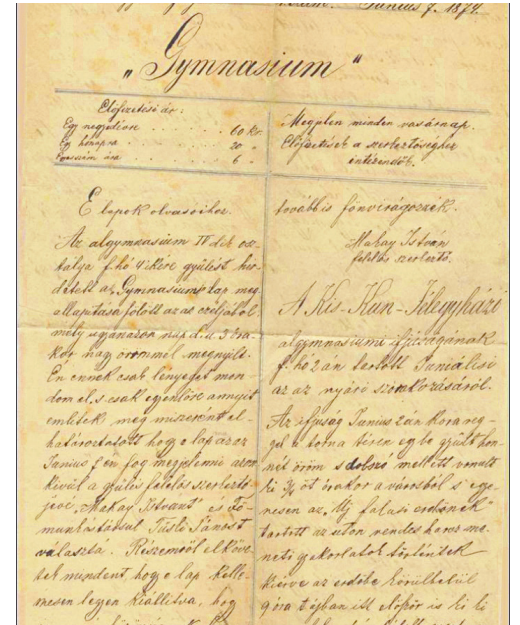 Junius 7. 1874.
„Gymnasium“
Előfizetési ár:
Egy negyedévre . . . . 60 kr.
Egy hónapra . . . . 20 „
Egyes szám ára . . . . 6 „
Megjelen minden vasárnap.
Előfizetések a szerkesztőséghez
intézendők.
E lapok olvasóihoz.
Az algymnasium IV dik osz
tálya f. hó 4 ikére gyűlést hir
detett a „Gymnasium“ lap meg
állapitása fölött azaz czéljából
mely ugyanazon nap d. u. 3 óra
kor nagy örömmel megnyilt.
Én ennek csak lényegét mon
dom el, s csak egyenlőre annyit
emlitek meg miszerint el-
határoztatott hogy e lap az az
Junius 7 én fog megjelenni azon
kivül a gyűlés felelős szerkesztő
jévé „Makay Istvánt“ és Fő
munkatársul Jánost
választá. Részemről elköve
tek mindent, hogy e lap kelle
mesen legyen kiállitva, hog
továbbis fönvirágozzék.
Makay István
felelős szerkesztő.
A Kis-Kun-Félegyházi
algymnasiumi ifjuságának
f. hó 2 án tartott Juniálisi
az az nyári szorakozásáról.
Az ifjuság Junius 2 án kora reg-
gel a torna téren egybe gyűlt hon
nét öröm s dobszó mellett vonult
ki ¾ öt órakor a városból s egye
nesen az „Uj falusi erdőnek“
tartott az uton rendes harcz me-
neti gyakorlatok történtek
kiérve az erdőbe körülbelül
góra tájban itt először is ki ki